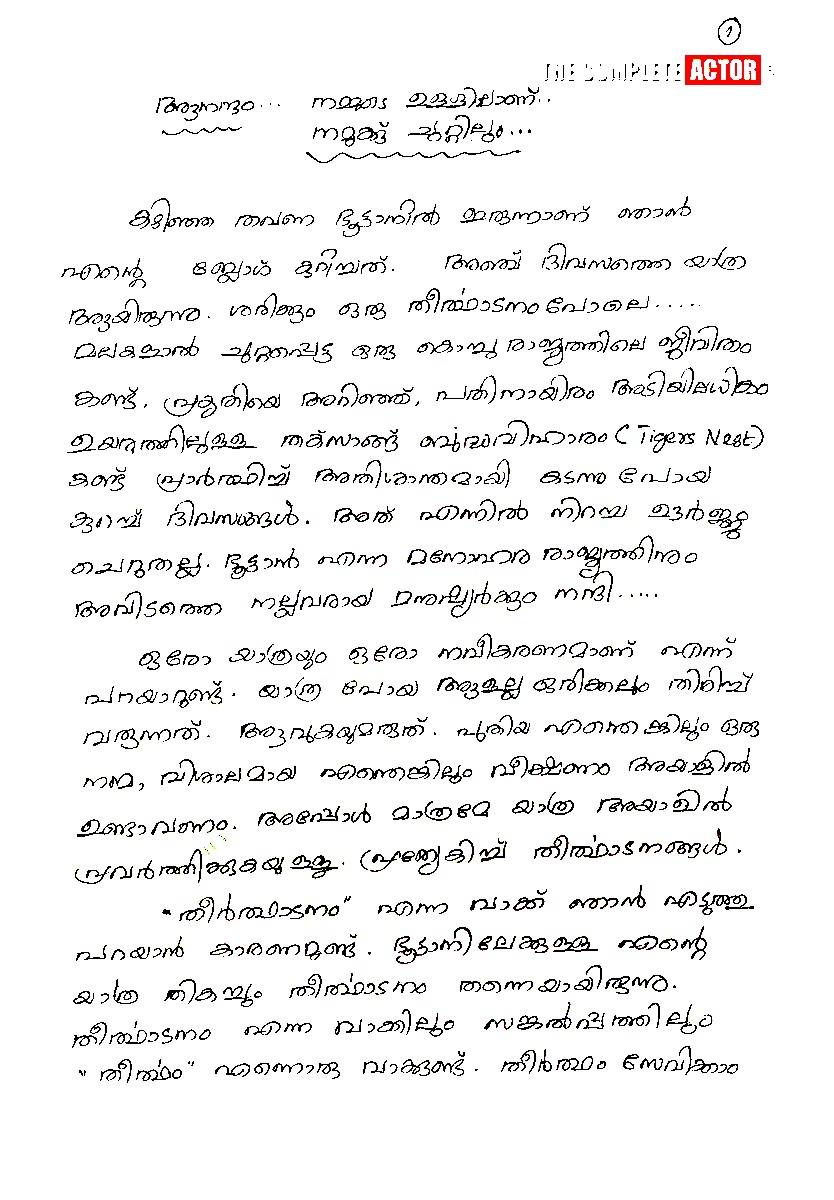 1
THE COMPLETE ACTOR
ആനന്ദം... നമ്മുടെ ഉള്ളിലാണ്..
നമുക്ക് ചുറ്റിലും...
കഴിഞ്ഞ തവണ ഭൂട്ടാനിൽ ഇരുന്നാണ് ഞാൻ
എന്റെ ബ്ലോഗ് കുറിച്ചത്. അഞ്ച് ദിവസത്തെ യാത്ര
ആയിരുന്നു. ശരിക്കും ഒരു തീർത്ഥാടനം പോലെ.....
മലകളാൽ ചുറ്റപ്പെട്ട ഒരു കൊച്ചു രാജ്യത്തിലെ ജീവിതം
കണ്ട്, പ്രകൃതിയെ അറിഞ്ഞ്, പതിനായിരം അടിയിലധികം
ഉയരത്തിലുള്ള തക്സാങ്ങ് ബുദ്ധവിഹാരം (Tigers Nest)
കണ്ട് പ്രാർത്ഥിച്ച് അതിശാന്തമായി കടന്നു പോയ
കുറച്ച് ദിവസങ്ങൾ. അത് എന്നിൽ നിറച്ച ഊർജ്ജം
ചെറുതല്ല. ഭൂട്ടാൻ എന്ന മനോഹര രാജ്യത്തിനും
അവിടത്തെ നല്ലവരായ മനുഷ്യർക്കും നന്ദി.....
ഒരോ യാത്രയും ഒരോ നവീകരണമാണ് എന്ന്
പറയാറുണ്ട്. യാത്ര പോയ ആളല്ല ഒരിക്കലും തിരിച്ച്
വരുന്നത്. ആവുകയുമരുത്. പുതിയ എന്തെങ്കിലും ഒരു
നന്മ, വിശാലമായ എന്തെങ്കിലും വീക്ഷണം അയാളിൽ
ഉണ്ടാവണം. അപ്പോൾ മാത്രമേ യാത്ര അയാളിൽ
പ്രവർത്തിക്കുകയുള്ളൂ. പ്രത്യേകിച്ച് തീർത്ഥാടനങ്ങൾ.
"തീർത്ഥാടനം" എന്ന വാക്ക് ഞാൻ എടുത്തു
പറയാൻ കാരണമുണ്ട്. ഭൂട്ടാനിലേക്കുള്ള എന്റെ
യാത്ര തികച്ചും തീർത്ഥാടനം തന്നെയായിരുന്നു.
തീർത്ഥാടനം എന്ന വാക്കിലും സങ്കൽപ്പത്തിലും
"തീർത്ഥം" എന്നൊരു വാക്കുണ്ട്. തീർത്ഥം സേവിക്കാം